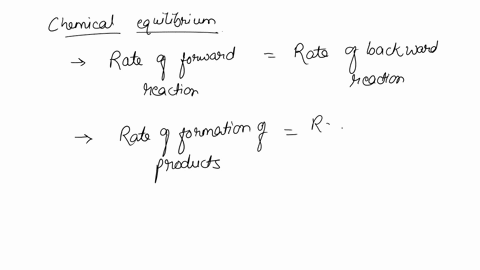 Chemical equilibrium
→ Rate of forward reaction = Rate of backward reaction
→ Rate of formation of products = R